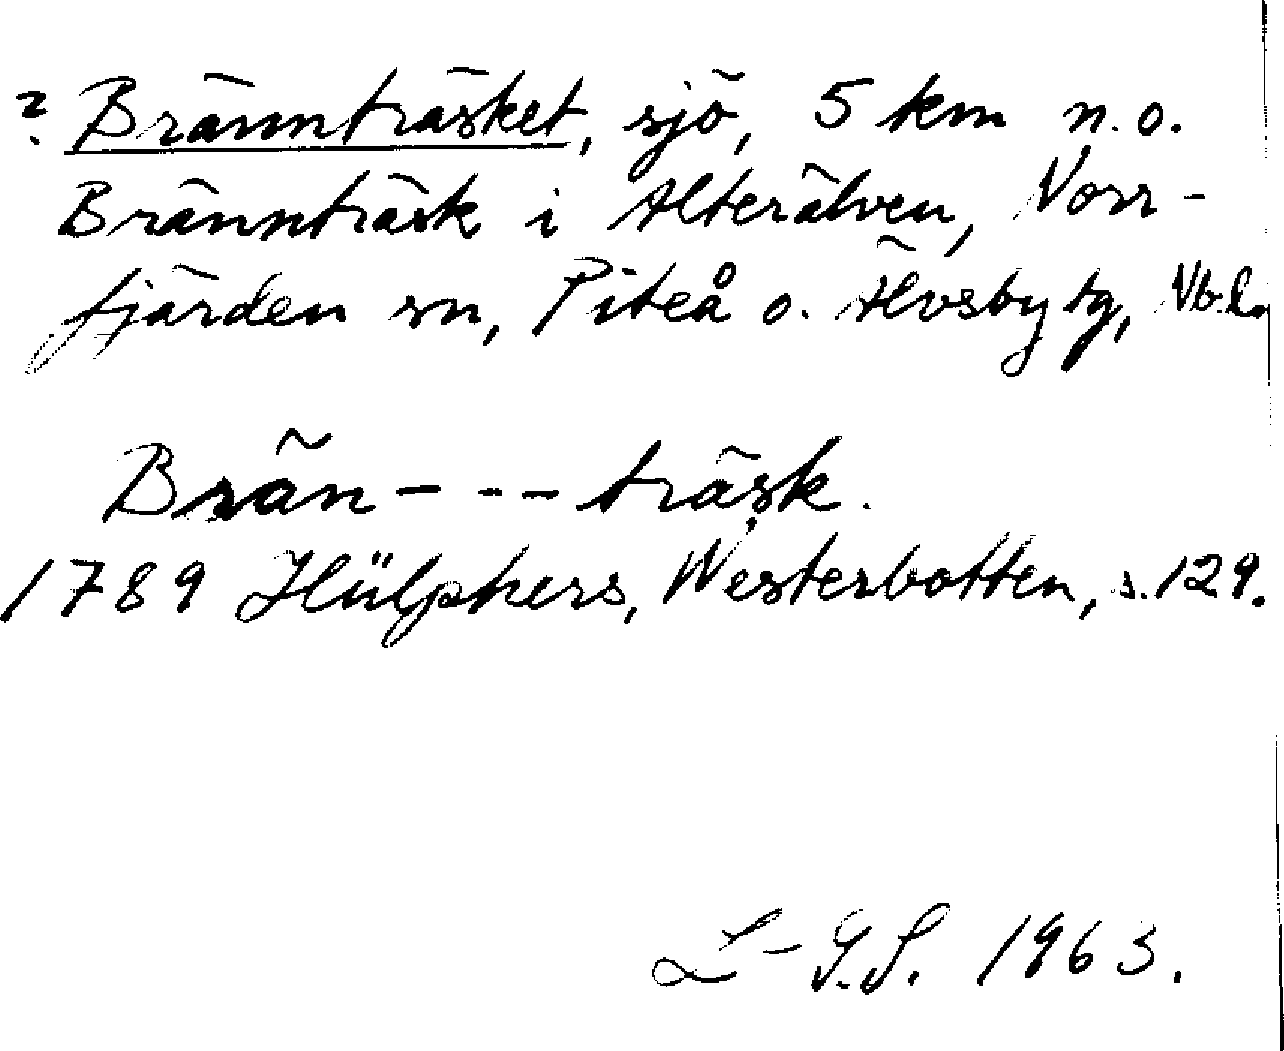 ? Brännträsket, sjö, 5 km n.o.
Brännträsk i Alterälven, Norr-
fjärden sn, Piteå o. Älvsby tg, Nb.l.
Brän- - - träsk.
1789 Hülphers, Westerbotten, s. 129.
L-G.S. 1963.